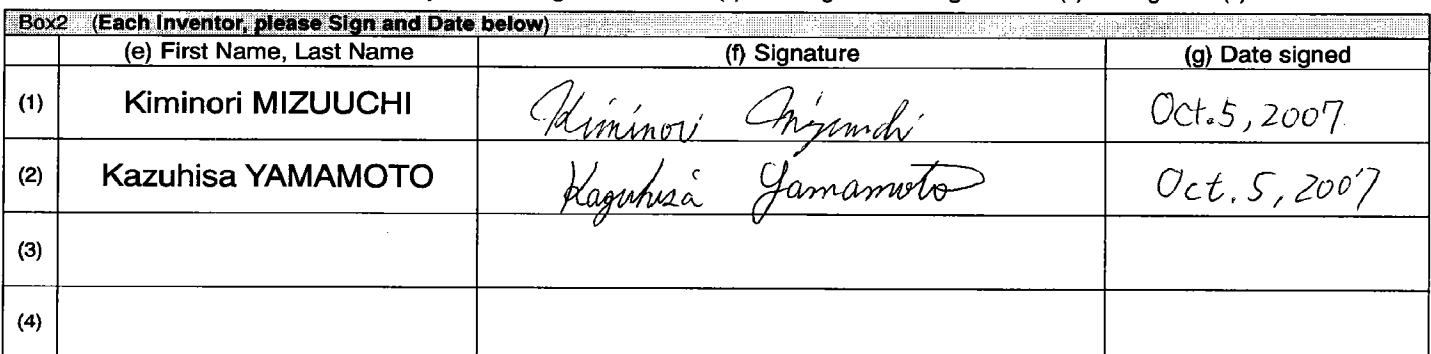 Box2 (Each Inventor, please Sign and Date below)
(e) First Name, Last Name (f) Signature (g) Date signed
(1) Kiminori MIZUUCHI Kiminori Mizuuchi Oct.5,2007
(2) Kazuhisa YAMAMOTO Kazuhisa Yamamoto Oct.5,2007
(3)
(4)